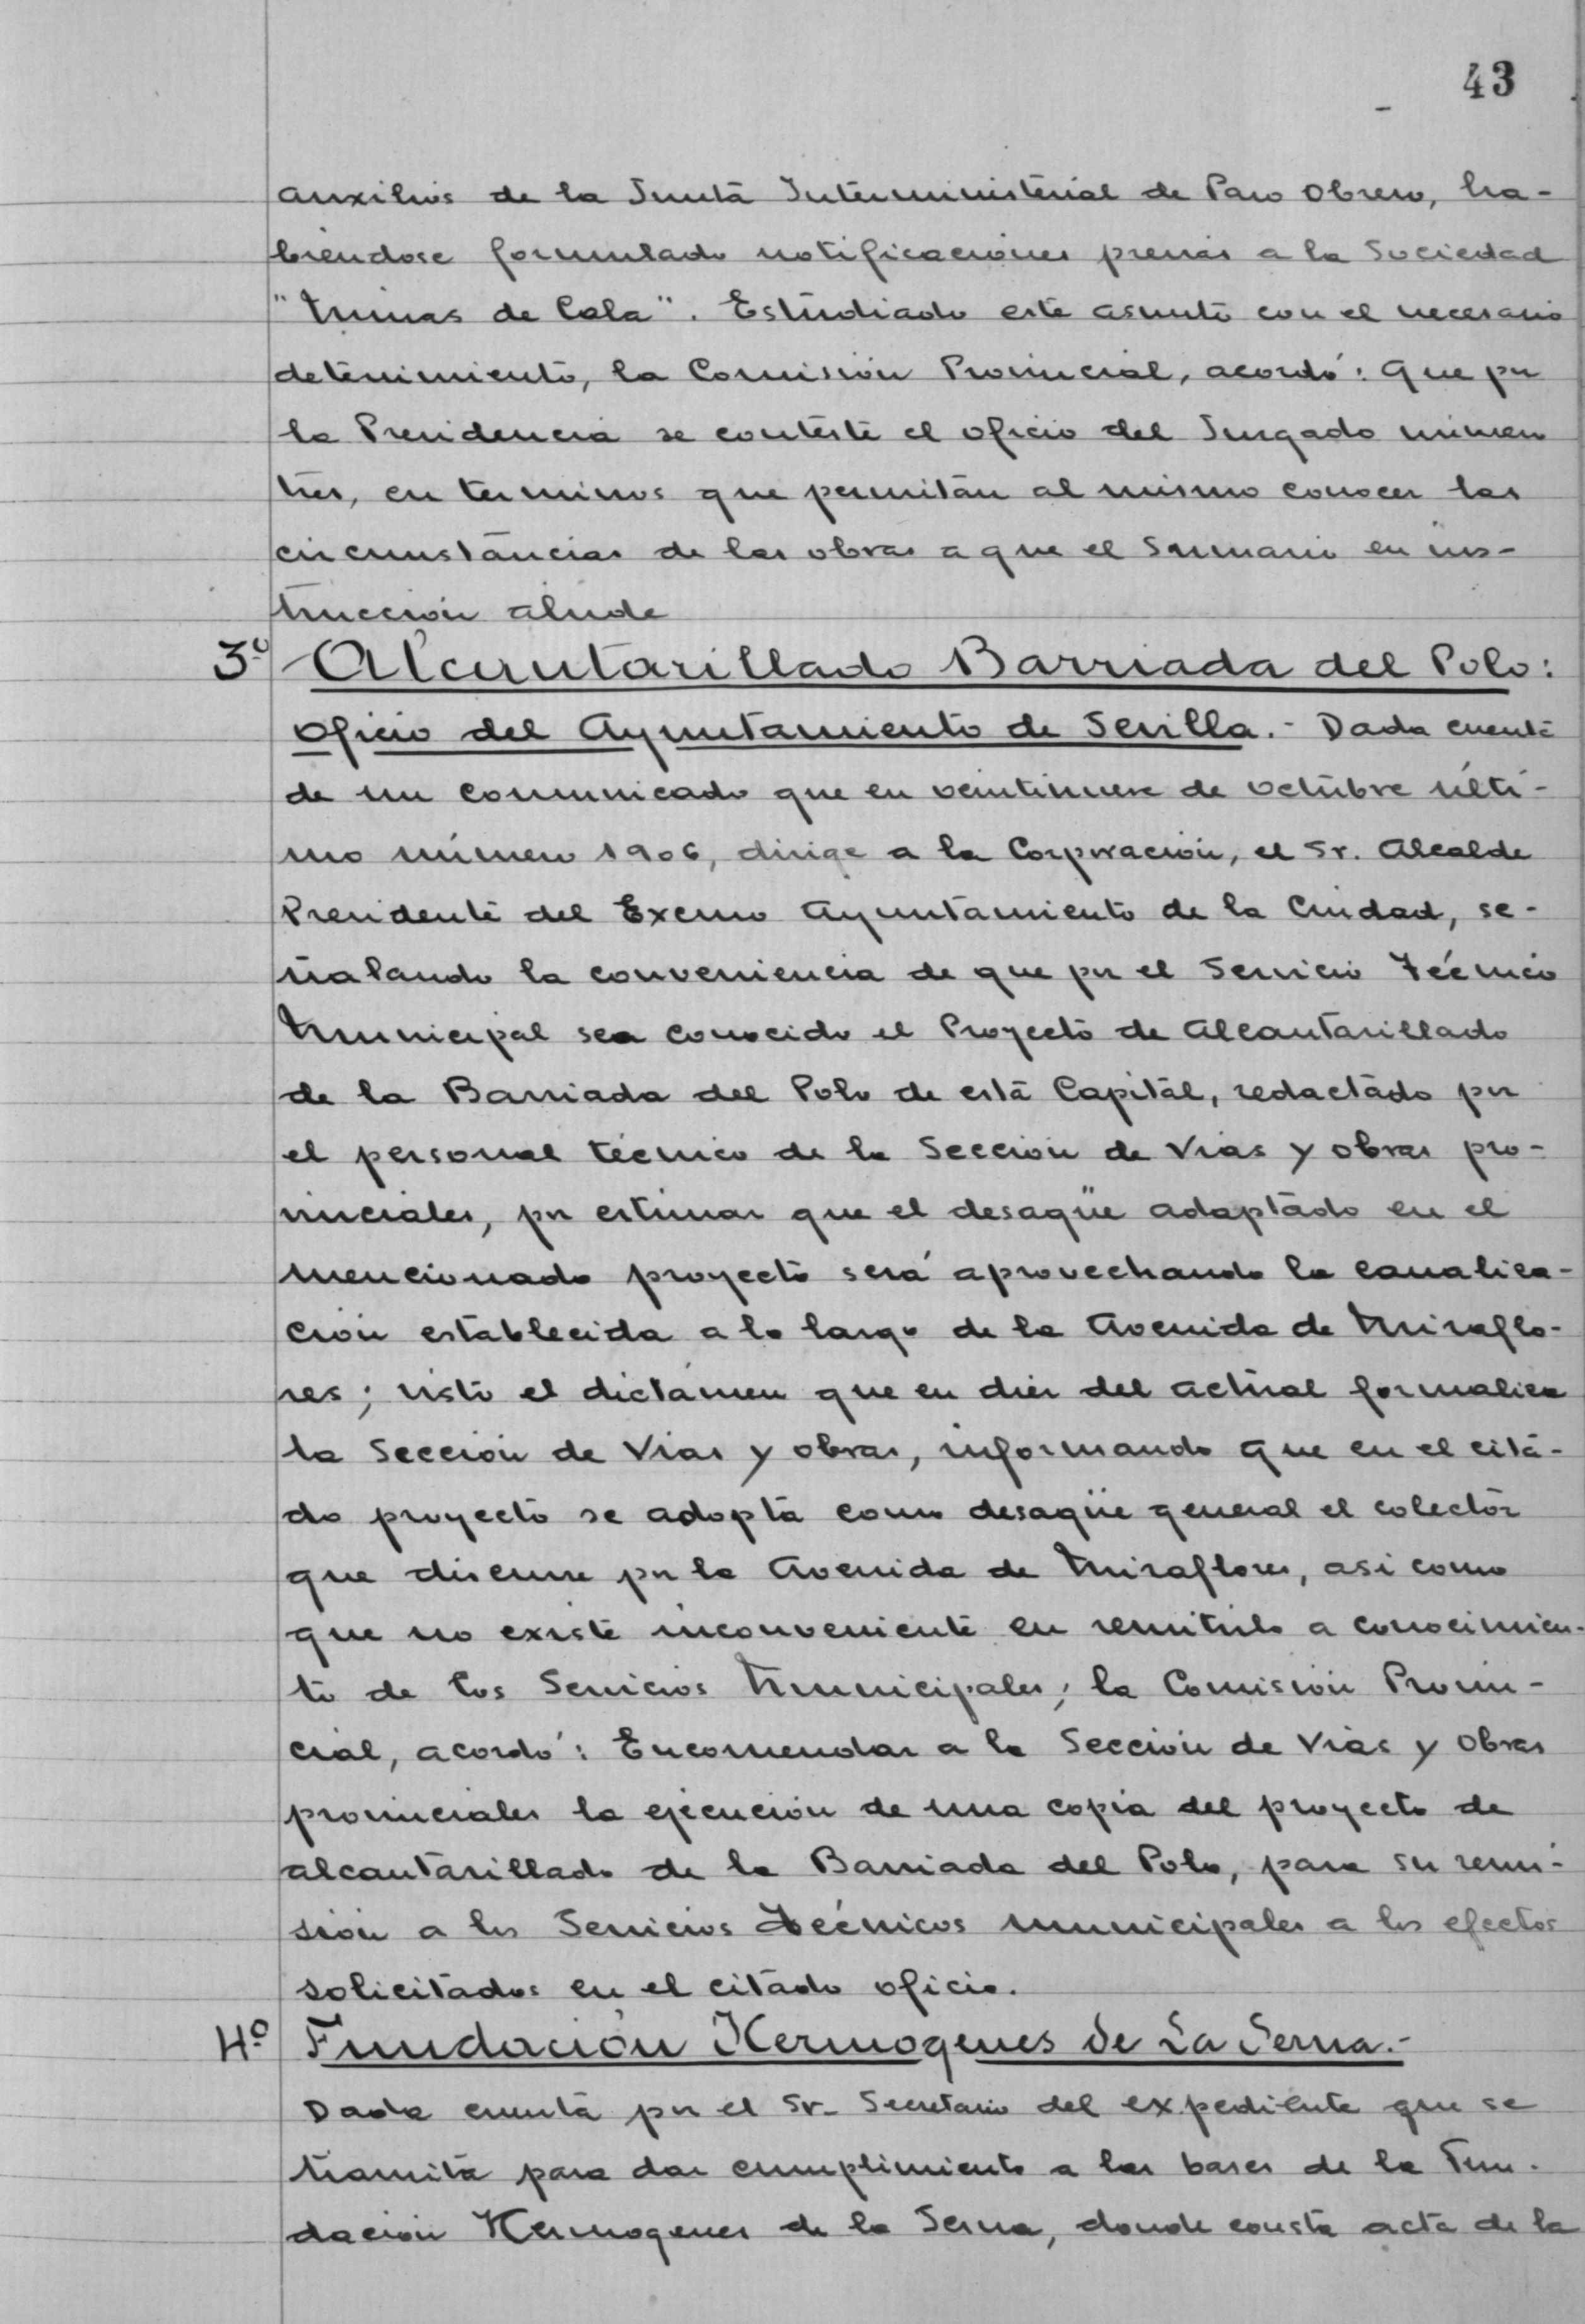 43
auxilios de la Junta Interministerial de Paro Obrero, ha-
biendose formulado notificaciones previas a la Sociedad
"Minas de Cala". Estudiado este asunto con el necesario
detenimiento, la Comisión Provincial, acordó: Que por
la Presidencia se conteste el oficio del Juzgado número
tres, en terminos que permitan al mismo conocer las
circunstancias de las obras a que el Sumario en ins-
trucción alude
3º Alcantarillado Barriada del Polo:
Oficio del Ayuntamiento de Sevilla.- Dada cuenta
de un comunicado que en veintinueve de octubre últi-
mo número 1906, dirige a la Corporación, el Sr. Alcalde
Presidente del Excmo Ayuntamiento de la Ciudad, se-
ñalando la conveniencia de que por el Servicio Técnico
Municipal sea conocido el Proyecto de Alcantarillado
de la Barriada del Polo de esta Capital, redactado por
el personal técnico de la Sección de Vias y obras pro-
vinciales, por estimar que el desagüe adaptado en el
mencionado proyecto será aprovechando la canaliza-
ción establecida a lo largo de la Avenida de Miraflo-
res; visto el dictámen que en diez del actual formaliza
la Sección de Vias y obras, informando que en el cita-
do proyecto se adopta como desagüe general el colector
que discurre por la Avenida de Miraflores, asi como
que no existe inconveniente en remitirlo a conocimien-
to de los Servicios Municipales; la Comisión Provin-
cial, acordó: Encomendar a la Sección de Vias y Obras
provinciales la ejecución de una copia del proyecto de
alcantarillado de la Barriada del Polo, para su remi-
sión a los Servicios Técnicos municipales a los efectos
solicitados en el citado oficio.
4º Fundación Hermogenes de La Serna.-
Dada cuenta por el Sr. Secretario del expediente que se
tramita para dar cumplimiento a las bases de la Fun-
dación Hermogenes de la Serna, donde consta acta de la